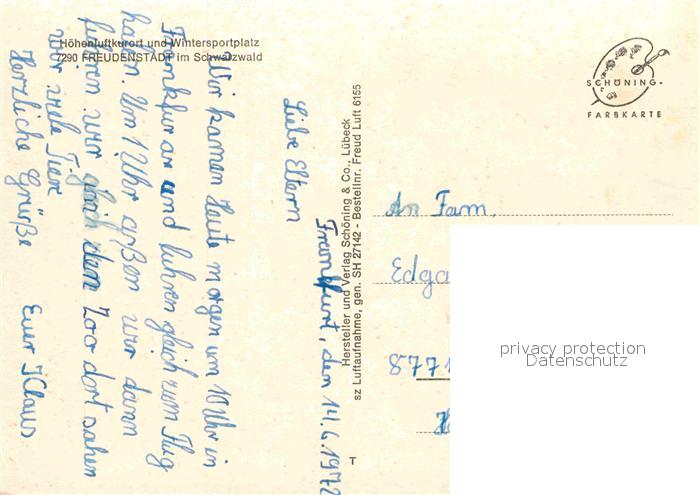 Höhenluftkurort und Wintersportplatz
7290 FREUDENSTADT im Schwarzwald
Frankfurt, den 14.6.1972
Liebe Eltern
Wir kamen Heute morgen um 10 Uhr in
Frankfur an und fuhren gleich zum Flug
hafen. Um 1 Uhr aßen wir dann
fuhren wir gleich den Zoo dort sahen
wir viele Tiere
Herzliche Grüße Euer Klaus
Hersteller und Verlag Schöning & Co., Lübeck
sz Luftaufnahme, gen. SH 27142 - Bestellnr. Freud Luft 6155
SCHÖNING
FARBKARTE
An Fam.
Edga
8771
T
privacy protection
Datenschutz